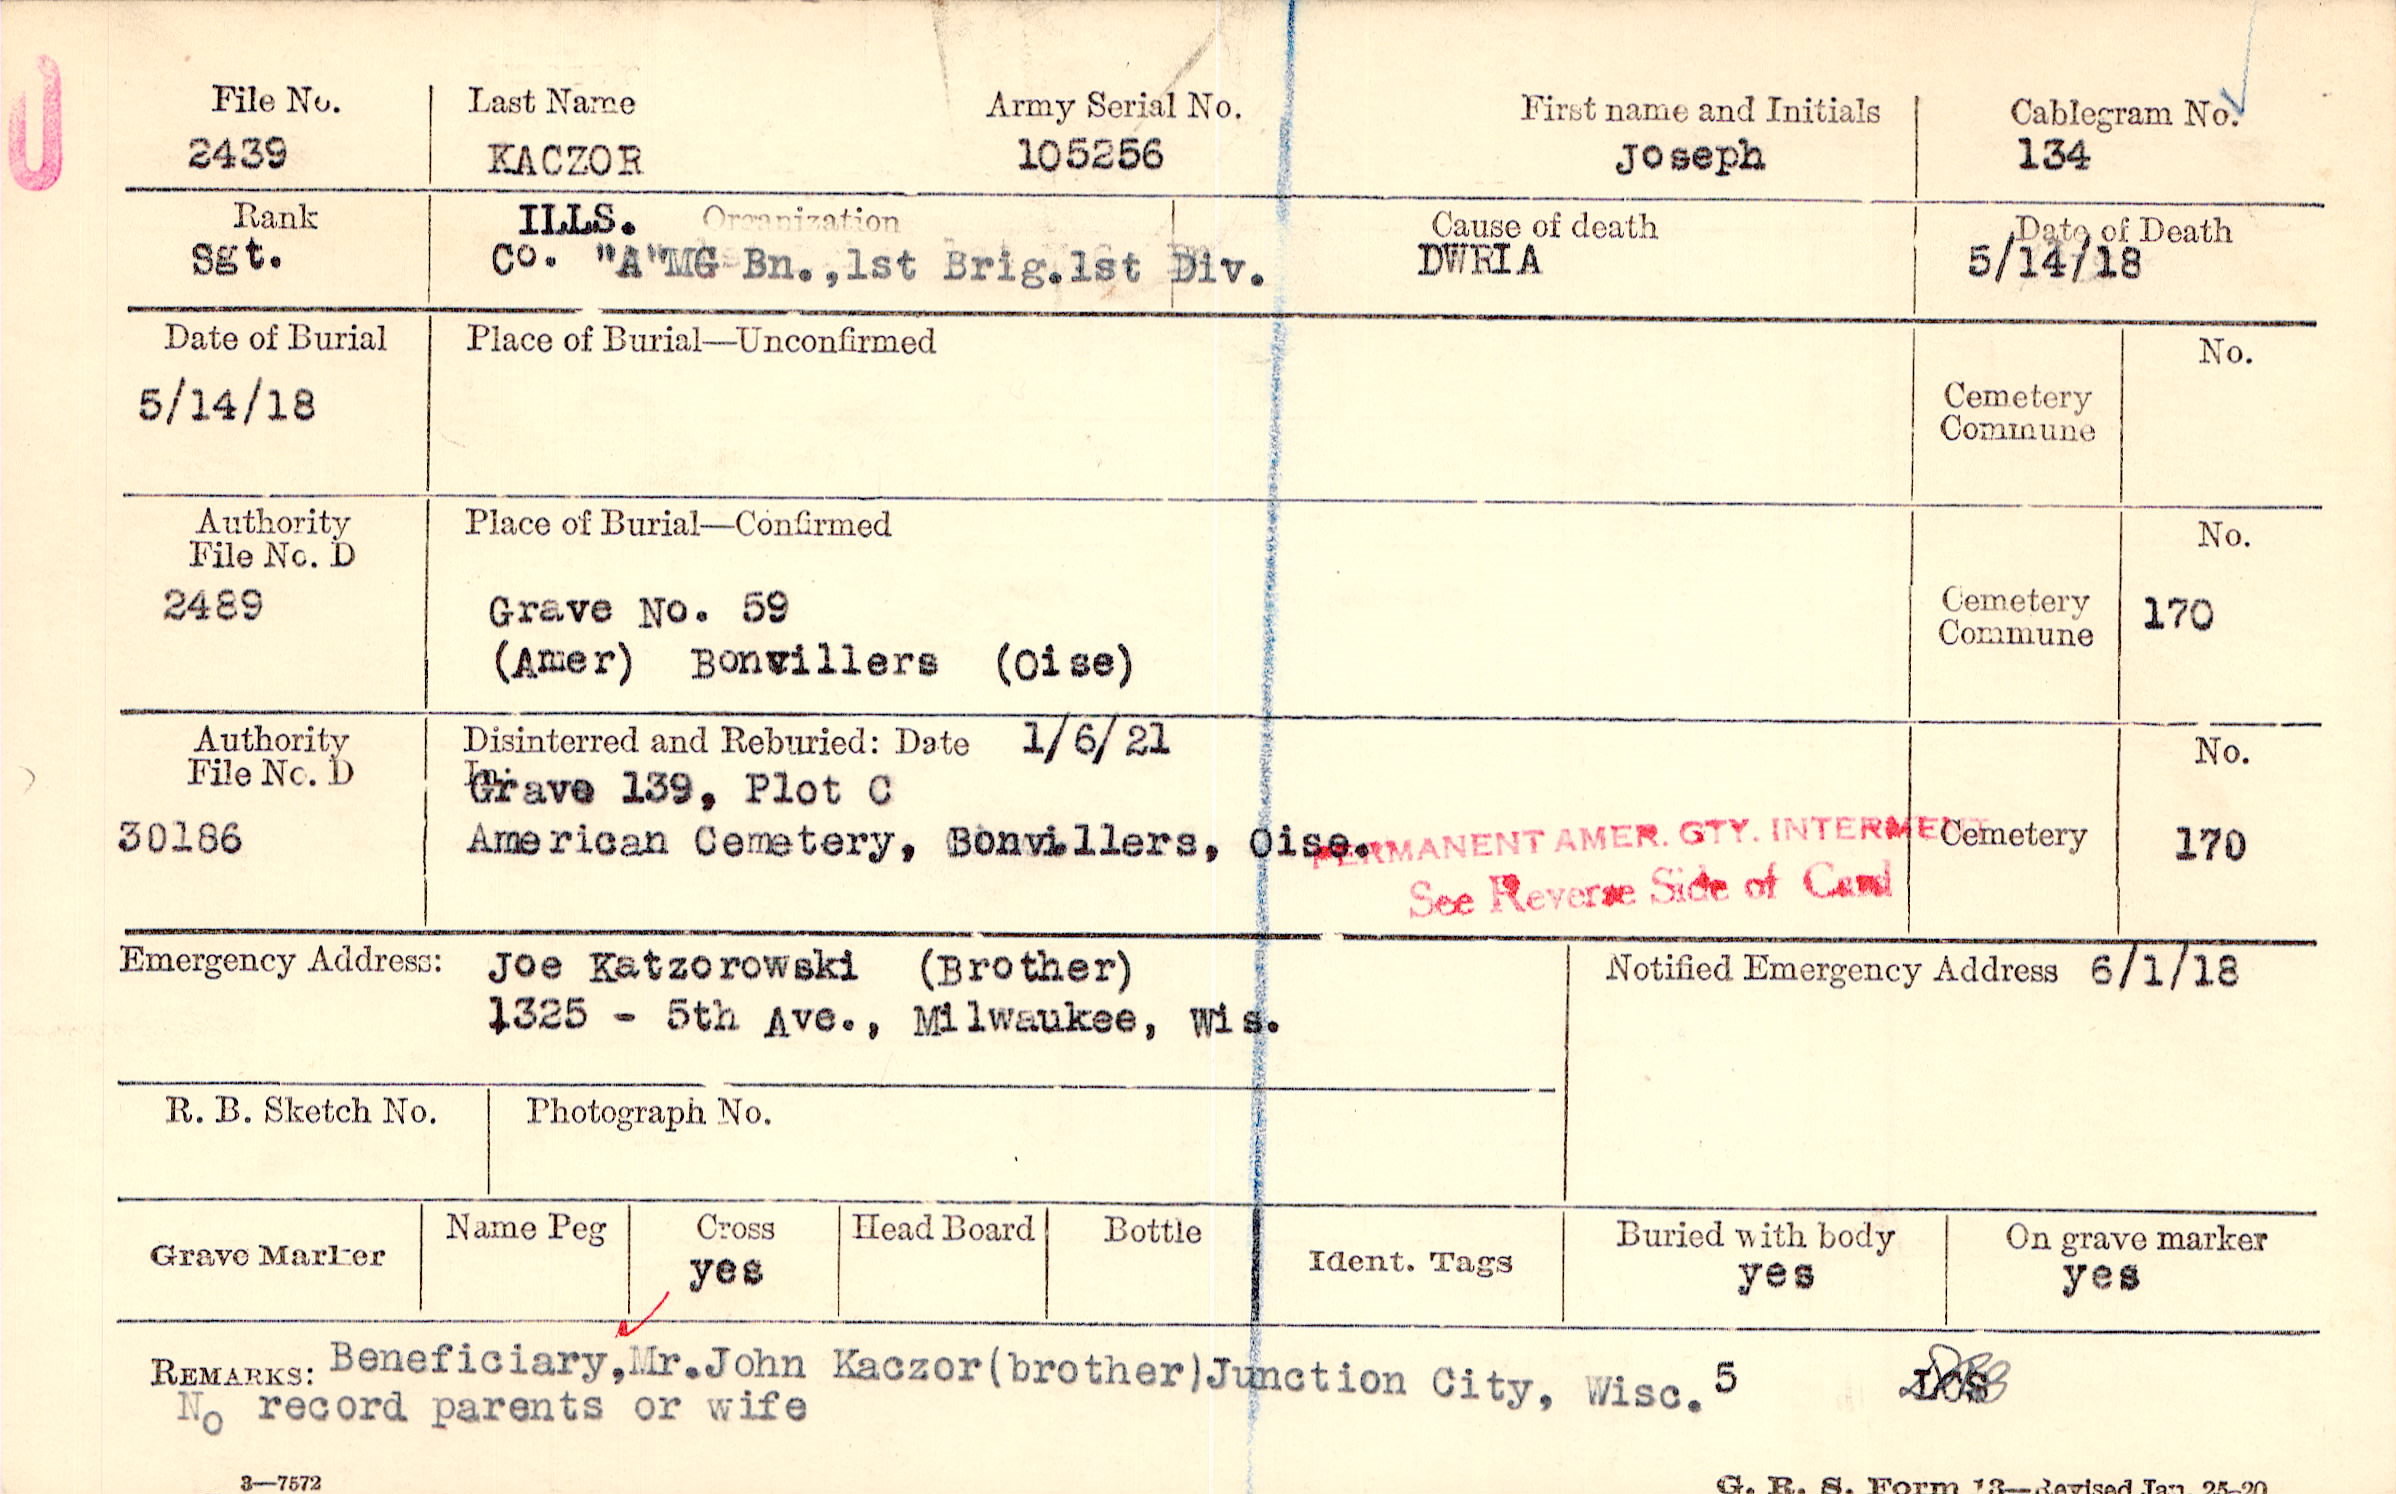 File No. Last Name Army Serial No. First name and Initials Cablegram No.
2439 KACZOR 105256 Joseph 134
Rank ILLS. Organization Cause of death Date of Death
Sgt. Co. "A"MG Bn.,1st Brig.1st Div. DWRIA 5/14/18
Date of Burial Place of Burial—Unconfirmed No.
5/14/18 Cemetery
Commune
Authority Place of Burial—Confirmed No.
File No. D
2489 Grave No. 59 Cemetery 170
Commune
(Amer) Bonvillers (Oise)
Authority Disinterred and Reburied: Date 1/6/21 No.
File No. D In:
Grave 139, Plot C
30186 American Cemetery, Bonvillers, Oise. Cemetery 170
PERMANENT AMER. GTY. INTERMENT
See Reverse Side of Card
Emergency Address: Joe Katzorowski (Brother) Notified Emergency Address 6/1/18
1325 - 5th Ave., Milwaukee, Wis.
R. B. Sketch No. Photograph No.
Name Peg Cross Head Board Bottle Buried with body On grave marker
Grave Marker yes Ident. Tags yes yes
REMARKS: Beneficiary,Mr.John Kaczor(brother)Junction City, Wisc. 5
No record parents or wife
3—7572 G. R. S. Form 13—Revised Jan. 25-20